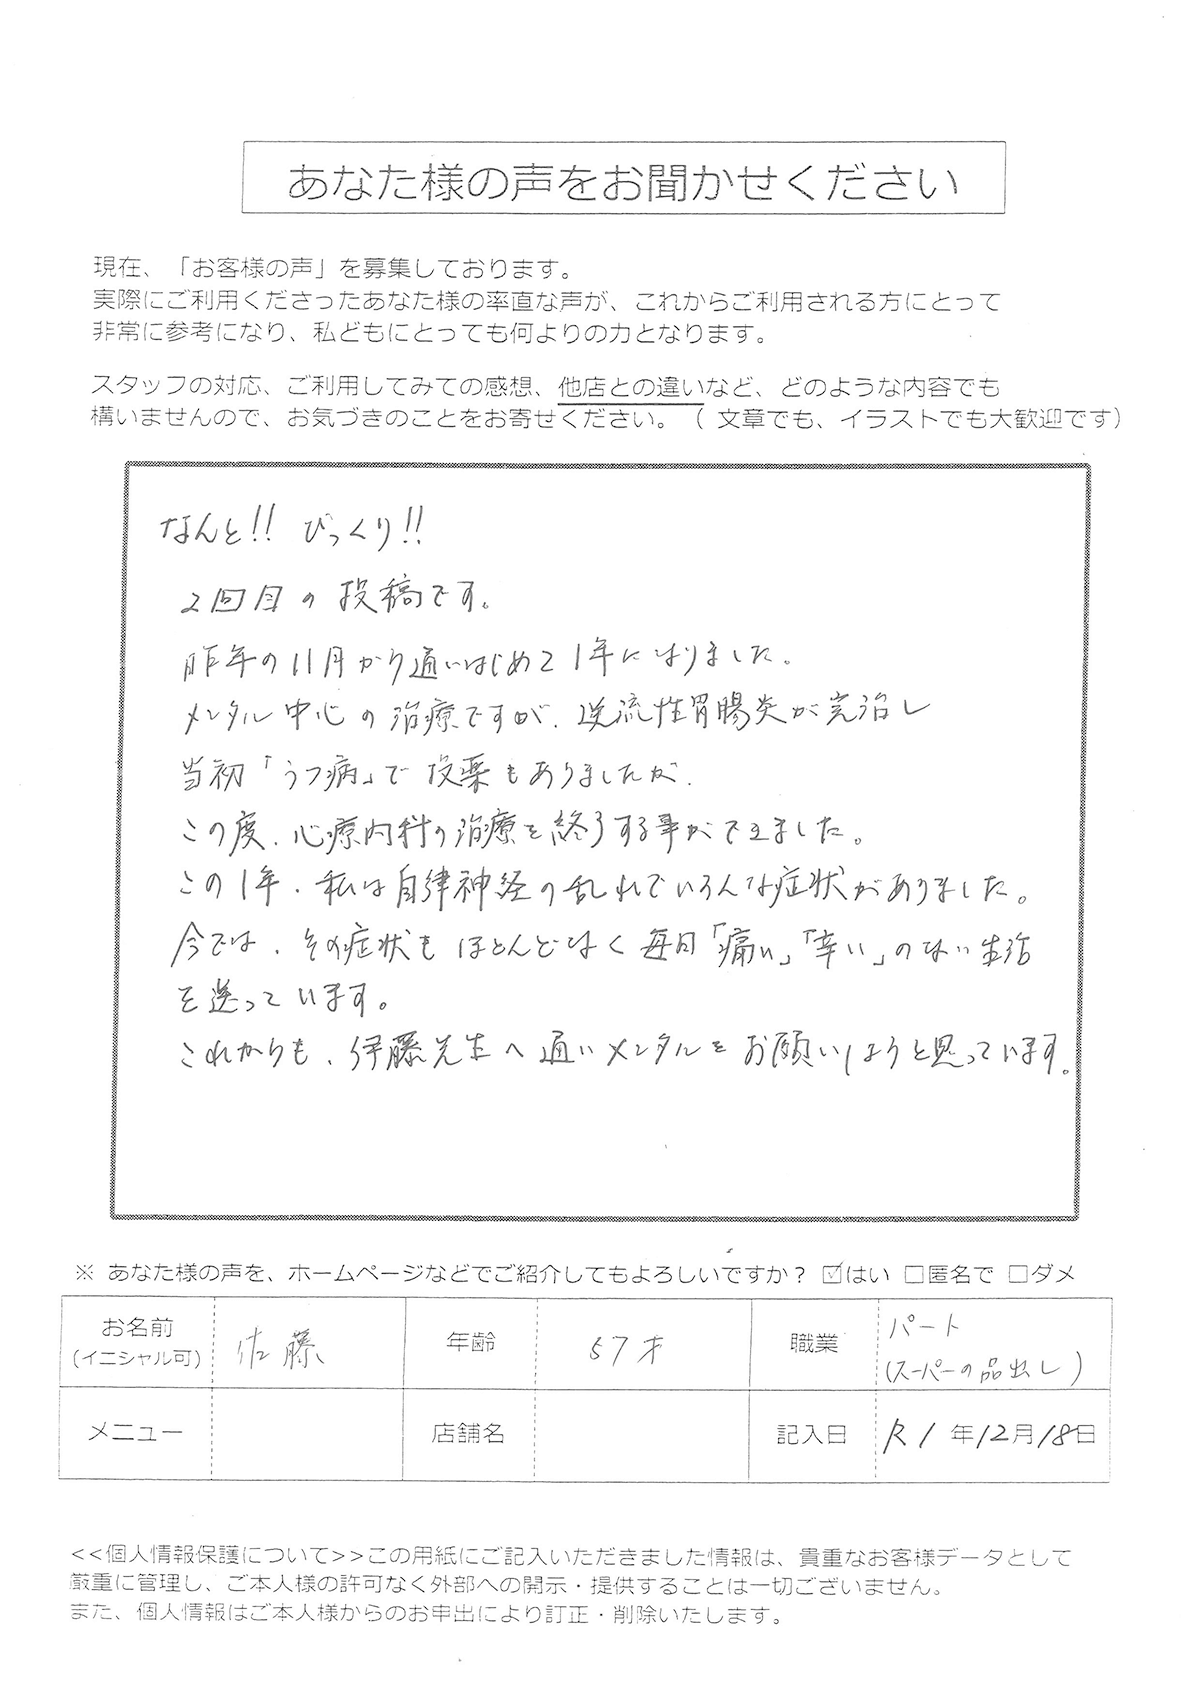 あなた様の声をお聞かせください
現在、「お客様の声」を募集しております。
実際にご利用くださったあなた様の率直な声が、これからご利用される方にとって
非常に参考になり、私どもにとっても何よりの力となります。
スタッフの対応、ご利用してみての感想、他店との違いなど、どのような内容でも
構いませんので、お気づきのことをお寄せください。（ 文章でも、イラストでも大歓迎です）
なんと!! びっくり!!
2回目の投稿です。
昨年の11月から通いはじめて1年になりました。
メンタル中心の治療ですが、逆流性胃腸炎が完治し
当初「うつ病」で投薬もありましたが、
この度、心療内科の治療を終了する事ができました。
この1年、私は自律神経の乱れでいろんな症状がありました。
今では、その症状もほとんどなく毎日「痛い」「辛い」のない生活
を送っています。
これからも、伊藤先生へ通いメンタルをお願いしようと思っています。
※ あなた様の声を、ホームページなどでご紹介してもよろしいですか？ ☑はい □匿名で □ダメ
お名前 (イニシャル可) 佐藤 年齢 57才 職業 パート (スーパーの品出し)
メニュー 店舗名 記入日 R1年12月18日
<<個人情報保護について>>この用紙にご記入いただきました情報は、貴重なお客様データとして
厳重に管理し、ご本人様の許可なく外部への開示・提供することは一切ございません。
また、個人情報はご本人様からのお申出により訂正・削除いたします。